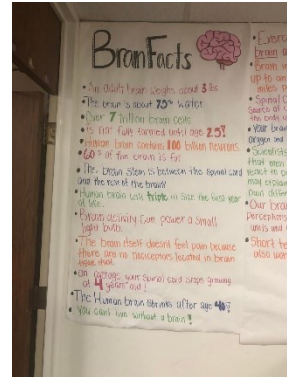 Brain Facts
• An adult brain weighs about 3 lbs
• The brain is about 75% water
• Over 7 trillion brain cells
• Is not fully formed until age 25!
• Human brain contains 100 billion neurons
• 60% of the brain is fat
• The brain stem is between the spinal cord
and the rest of the brain!
• Human brain will triple in size the first year
of life.
• Brain activity can power a small
light bulb.
• The brain itself doesnt feel pain because
there are no nociceptors located in brain
tissue itself.
• On average your spinal cord stops growing
at 4 years old!
• The Human brain shrinks after age 40!
• You cant live without a brain!
• Exerc
brain a
• Brain in
up to
miles p
• Spinal C
the body
• Your brain
oxygen and
• Scientists
that men
react to
may explain
own differ
• Our brai
perception
units and
• Short te
also wor